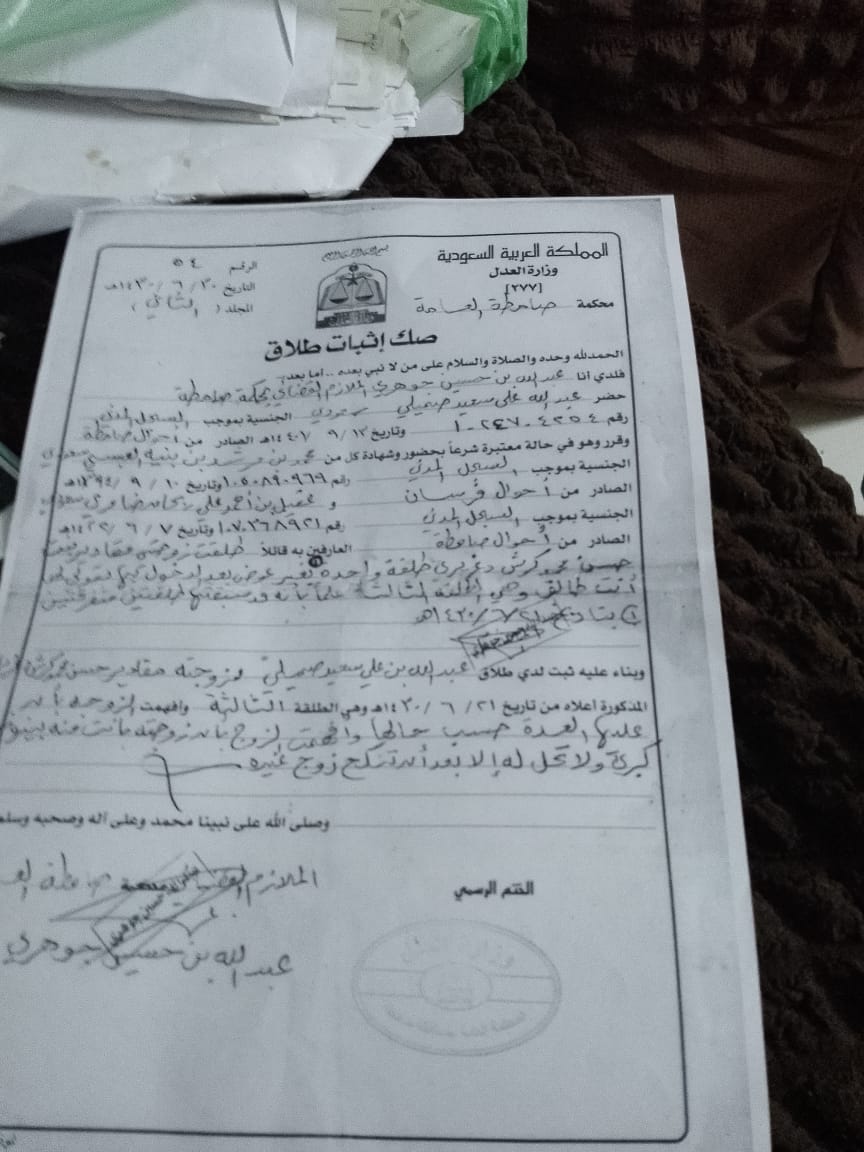 المملكة العربية السعودية
وزارة العدل
[٢٧٧]
محكمة صامطة العامة
الرقم ٥٤
التاريخ ٣٠ / ٦ / ١٤٣٠هـ
المجلد ( الثاني )
صك إثبات طلاق
الحمدلله وحده والصلاة والسلام على من لا نبي بعده .. أما بعد..
فلدي أنا عبدالله بن حسين جوهري الملازم القضائي بمحكمة صامطة
حضر عبدالله علي سعيد صميلي سعودي الجنسية بموجب السجل المدني
رقم ١٠٢٤٧٠٤٢٥٤ وتاريخ ١٣ / ٩ / ١٤٠٧هـ الصادر من أحوال صامطة
وقرر وهو في حالة معتبرة شرعاً بحضور وشهادة كل من محمد بن مرشد بن سعودي
الجنسية بموجب السجل المدني رقم ١٠٥٠٨٩٠٩٦٩ وتاريخ ١٠ / ٩ / ١٣٩٤هـ
الصادر من أحوال فرسان و عقيل بن أحمد علي سعودي
الجنسية بموجب السجل المدني رقم ١٠٧٠٣٦٨٩٢١ وتاريخ ٧ / ٦ / ١٤٢٢هـ
الصادر من أحوال صامطة العارفين به قائلاً طلقت زوجتي مقادير
حسن محمد كرش دغريري طلقة واحدة بغير عوض بعد الدخول بها بقولي لها
أنت طالق وهي الطلقة الثالثة علماً بأنه قد سبقتها طلقتين متفرقتين
بتاريخ ٢١ / ٦ / ١٤٣٠هـ
وبناء عليه ثبت لدي طلاق عبدالله بن علي سعيد صميلي لزوجته مقادير حسن محمد كرش
المذكورة اعلاه من تاريخ ٢١ / ٦ / ١٤٣٠هـ وهي الطلقة الثالثة وافهمت الزوجه بأن
عليها العدة حسب حالها وافهمت الزوج بأن زوجته بانت منه بينونة
كبرى ولا تحل له إلا بعد أن تنكح زوج غيره
وصلى الله على نبينا محمد وعلى آله وصحبه وسلم
الختم الرسمي
الملازم القضائي بمحكمة صامطة
عبدالله بن حسين جوهري